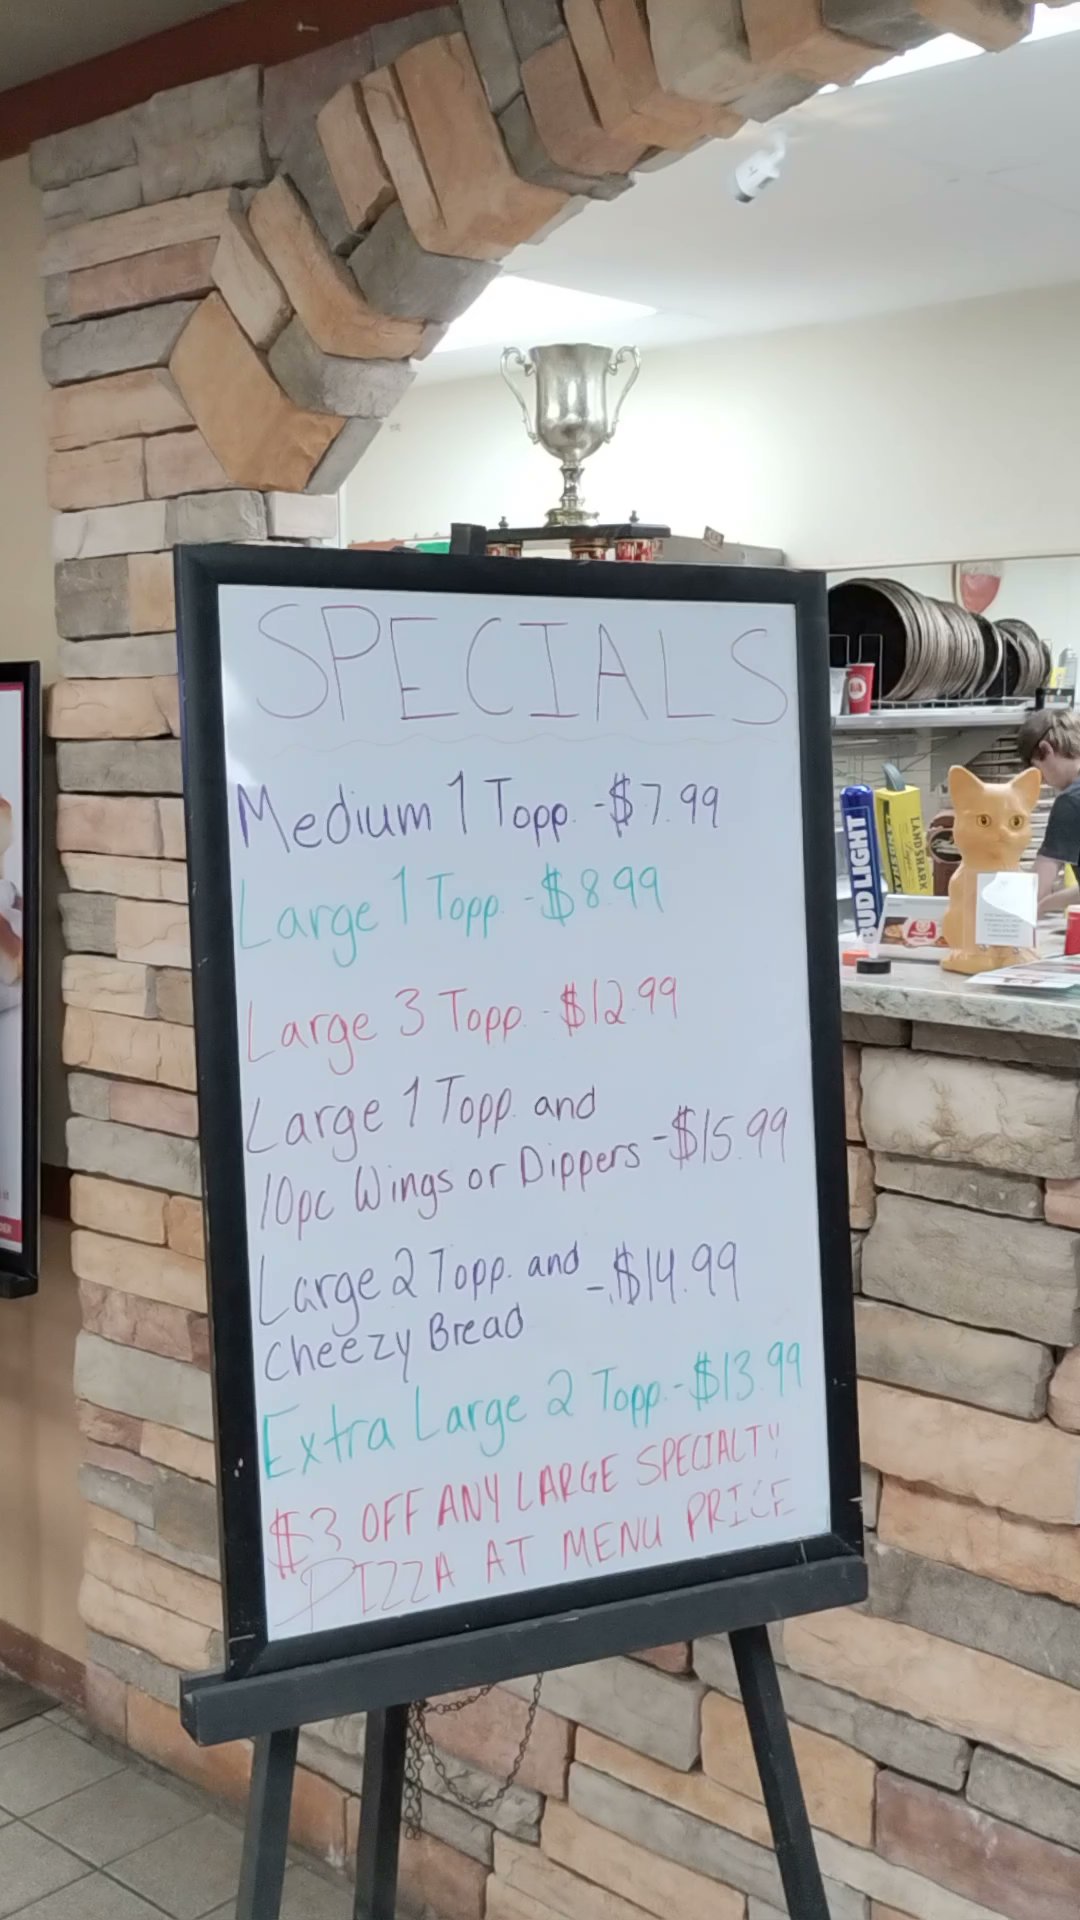 SPECIALS
Medium 1 Topp. - $7.99
Large 1 Topp. - $8.99
Large 3 Topp. - $12.99
Large 1 Topp. and
10pc Wings or Dippers - $15.99
Large 2 Topp. and - $14.99
Cheezy Bread
Extra Large 2 Topp. - $13.99
$3 OFF ANY LARGE SPECIALTY
PIZZA AT MENU PRICE
BUD LIGHT
LANDSHARK